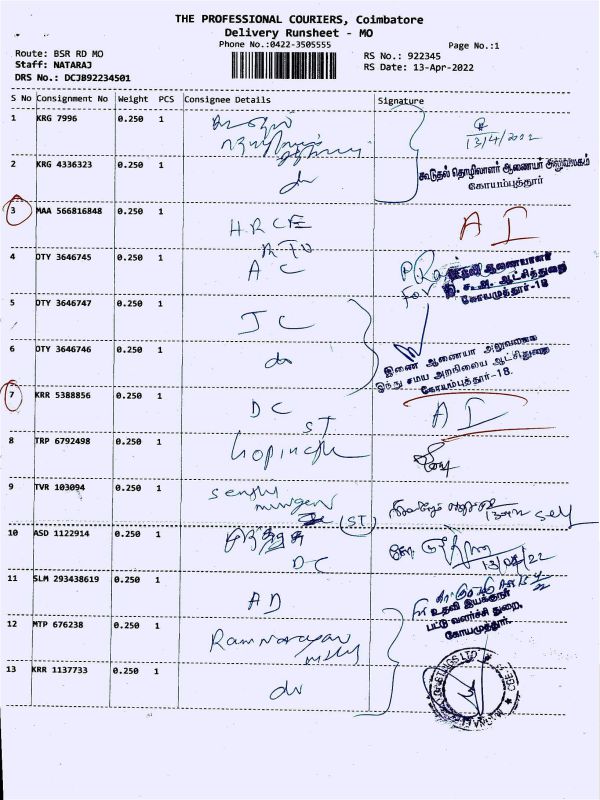 THE PROFESSIONAL COURIERS, Coimbatore
Delivery Runsheet - MO
Phone No.:0422-3505555
Page No.:1
Route: BSR RD MO
Staff: NATARAJ
DRS No.: DCJ892234501
RS No.: 922345
RS Date: 13-Apr-2022
S No Consignment No Weight PCS Consignee Details Signature
1 KRG 7996 0.250 1
13/4/2022
2 KRG 4336323 0.250 1 do
கூடுதல் தொழிலாளர் ஆணையர் அலுவலகம்
கோயம்புத்தூர்
3 MAA 566816848 0.250 1 HRCE A I
4 DTY 3646745 0.250 1 A C
உதவி ஆணையாளர்
கோயமுத்தூர்-18
For
5 DTY 3646747 0.250 1 J C
6 DTY 3646746 0.250 1 do
இணை ஆணையர் அலுவலகம்
இந்து சமய அறநிலைய ஆட்சித்துறை
கோயம்புத்தூர்-18.
7 KRR 5388856 0.250 1 D C A I
ST
8 TRP 6792498 0.250 1 Gopinath
9 TVR 103094 0.250 1 Senthil
murugan self
(ST)
10 ASD 1122914 0.250 1
D C
11 SLM 293438619 0.250 1 A D
உதவி இயக்குநர்
பட்டு வளர்ச்சி துறை,
கோயமுத்தூர்.
12 MTP 676238 0.250 1 Ramnarayan
mills
13 KRR 1137733 0.250 1 do